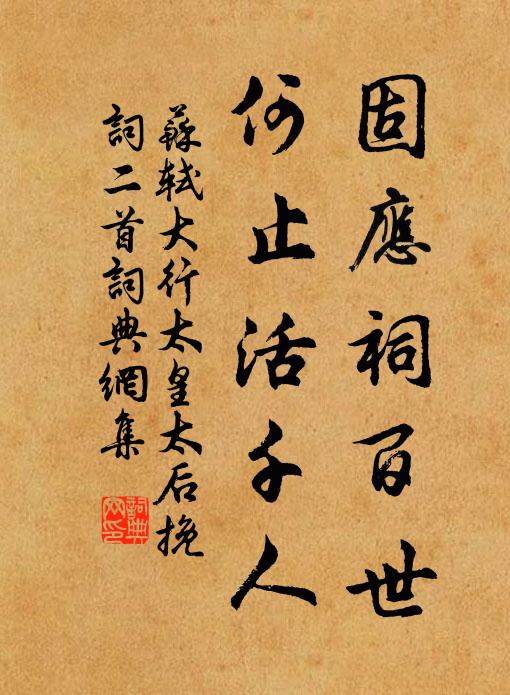 固應祠百世
何止活千人
蘇軾大行太皇太后挽
詞二首詞典網集
詞典
网印